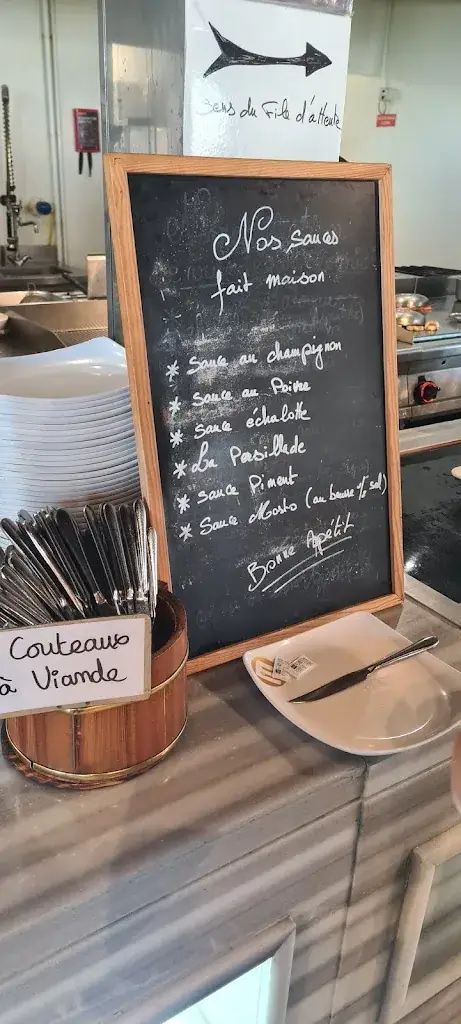 Sens du File d'attente
Nos sauces
fait maison
* Sauce au champignon
* Sauce au Poivre
* Sauce échalotte
* La Persillade
* Sauce Piment
* Sauce Mosto (au beurre ½ sel)
Bonne Appétit
Couteaux
à Viande